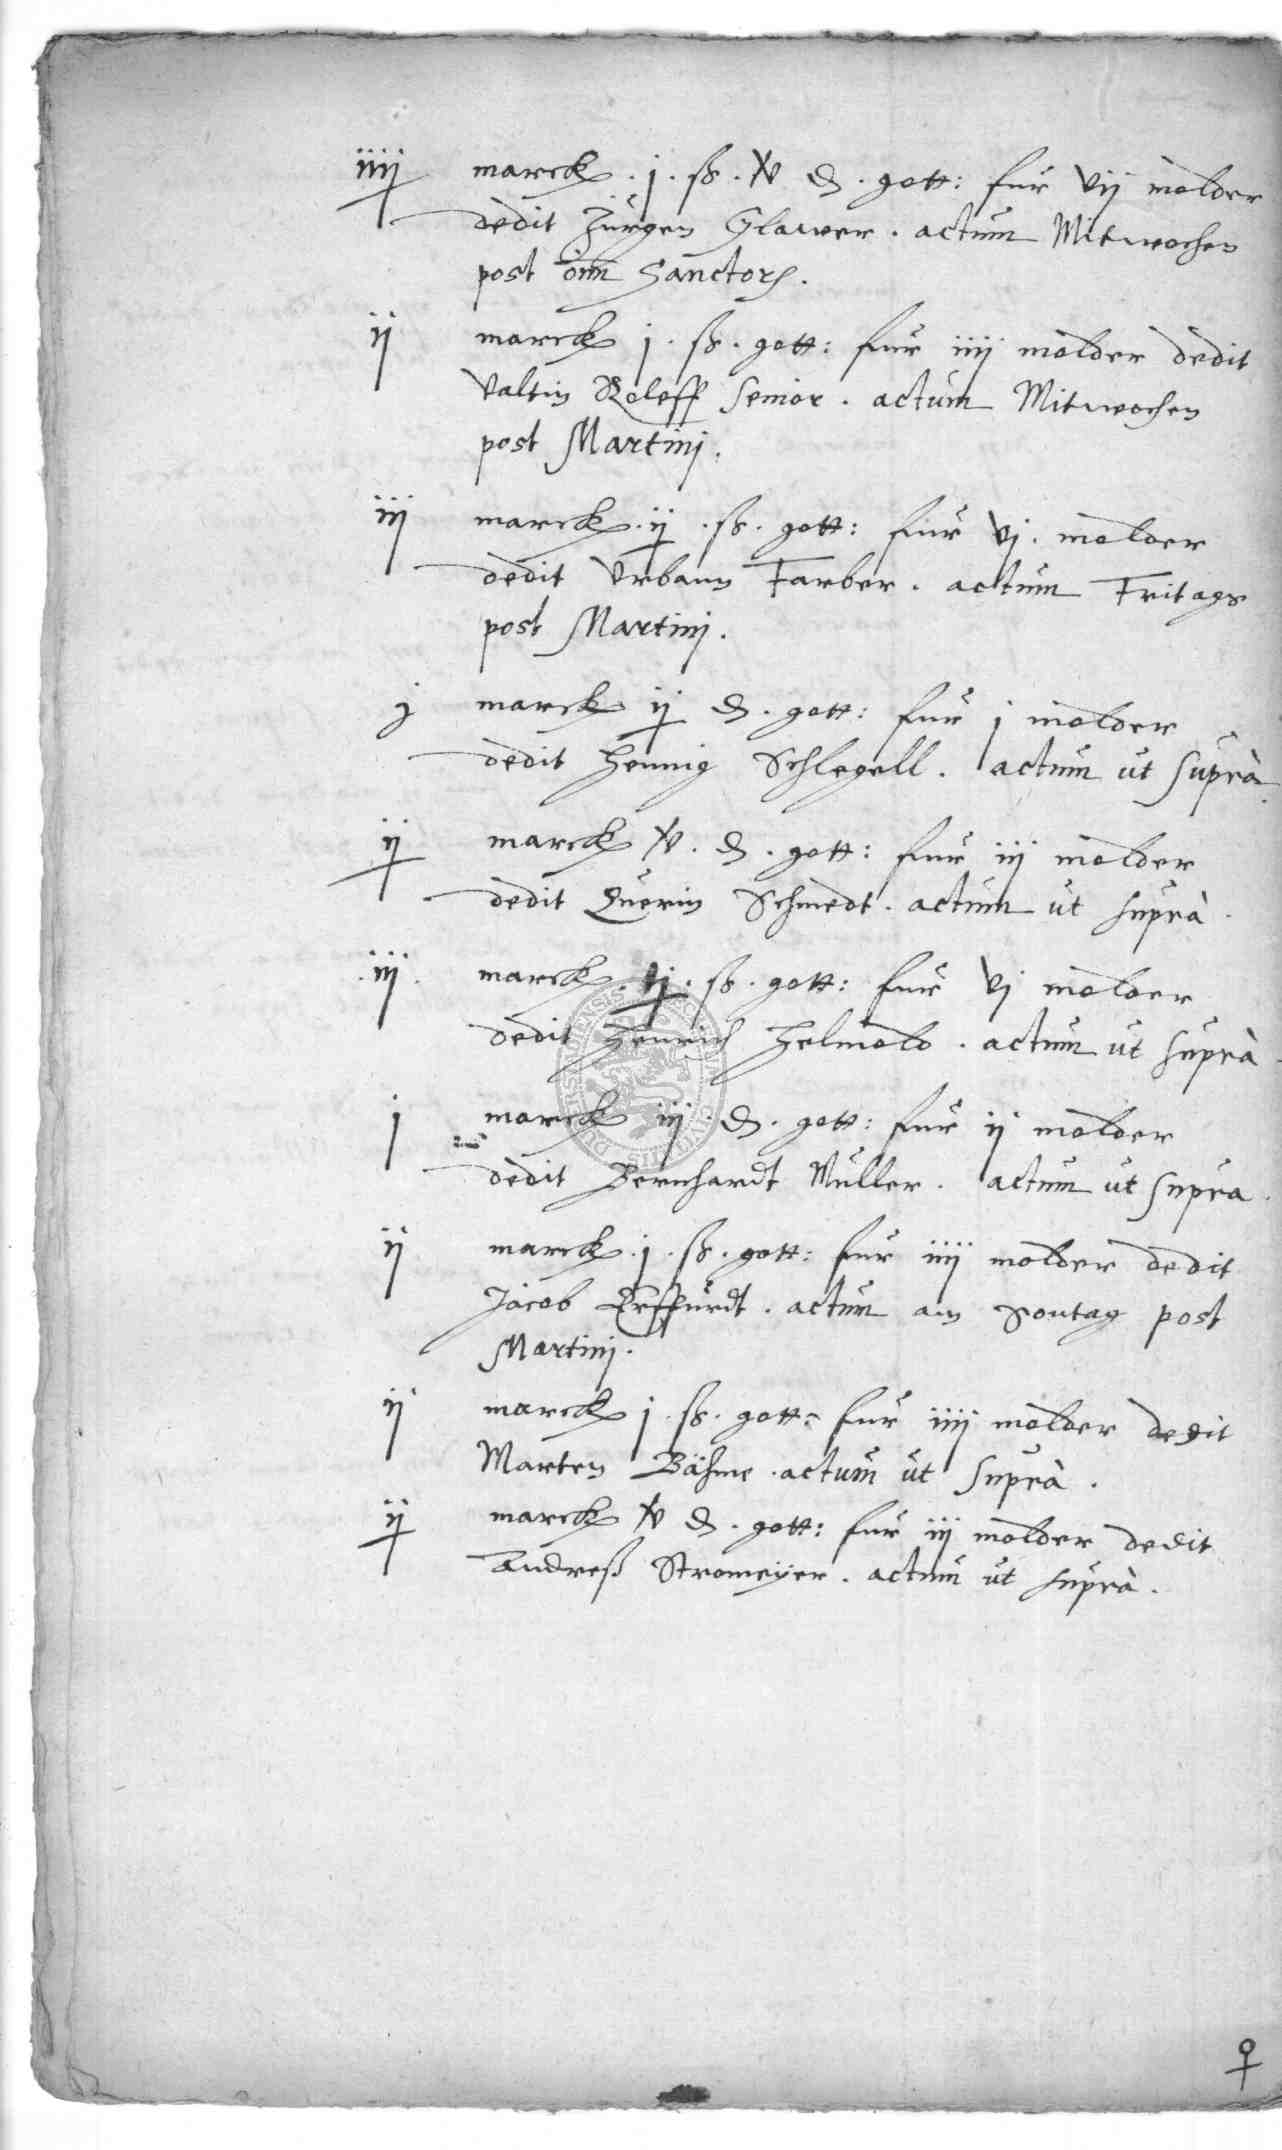 iiij marck . j . ß . v ₰ . gott: fur vij molder
dedit Jurgen Glawer . actum Mitwochen
post om̄ Sanctor̄.
ij marck j . ß . gott: fur iiij molder dedit
Valtin Roleff Senior . actum Mitwochen
post Martinj.
iij marck . ij . ß . gott: fur vj . molder
dedit Vrbann Farber . actum Fritags
post Martinj.
j marck ij ₰ . gott: fur j molder
dedit Hennig Schlegell . actum ut suprà
ij marck v . ₰ . gott: fur iij molder
dedit Querin Schmedt . actum ut suprà .
iij . marck . ij . ß . gott: fur vj molder
dedit Henrich Helmold . actum ut suprà
j marck iij . ₰ . gott: fur ij molder
dedit Bernhardt Muller . actum ut supra .
ij marck . j . ß . gott: fur iiij molder dedit
Jacob Erffurdt . actum am Sontag post
Martinj .
ij marck j . ß . gott: fur iiij molder dedit
Marten Bähme . actum ut suprà .
ij marck v ₰ . gott: fur iij molder dedit
Andreß Stromeyer . actum ut suprà .